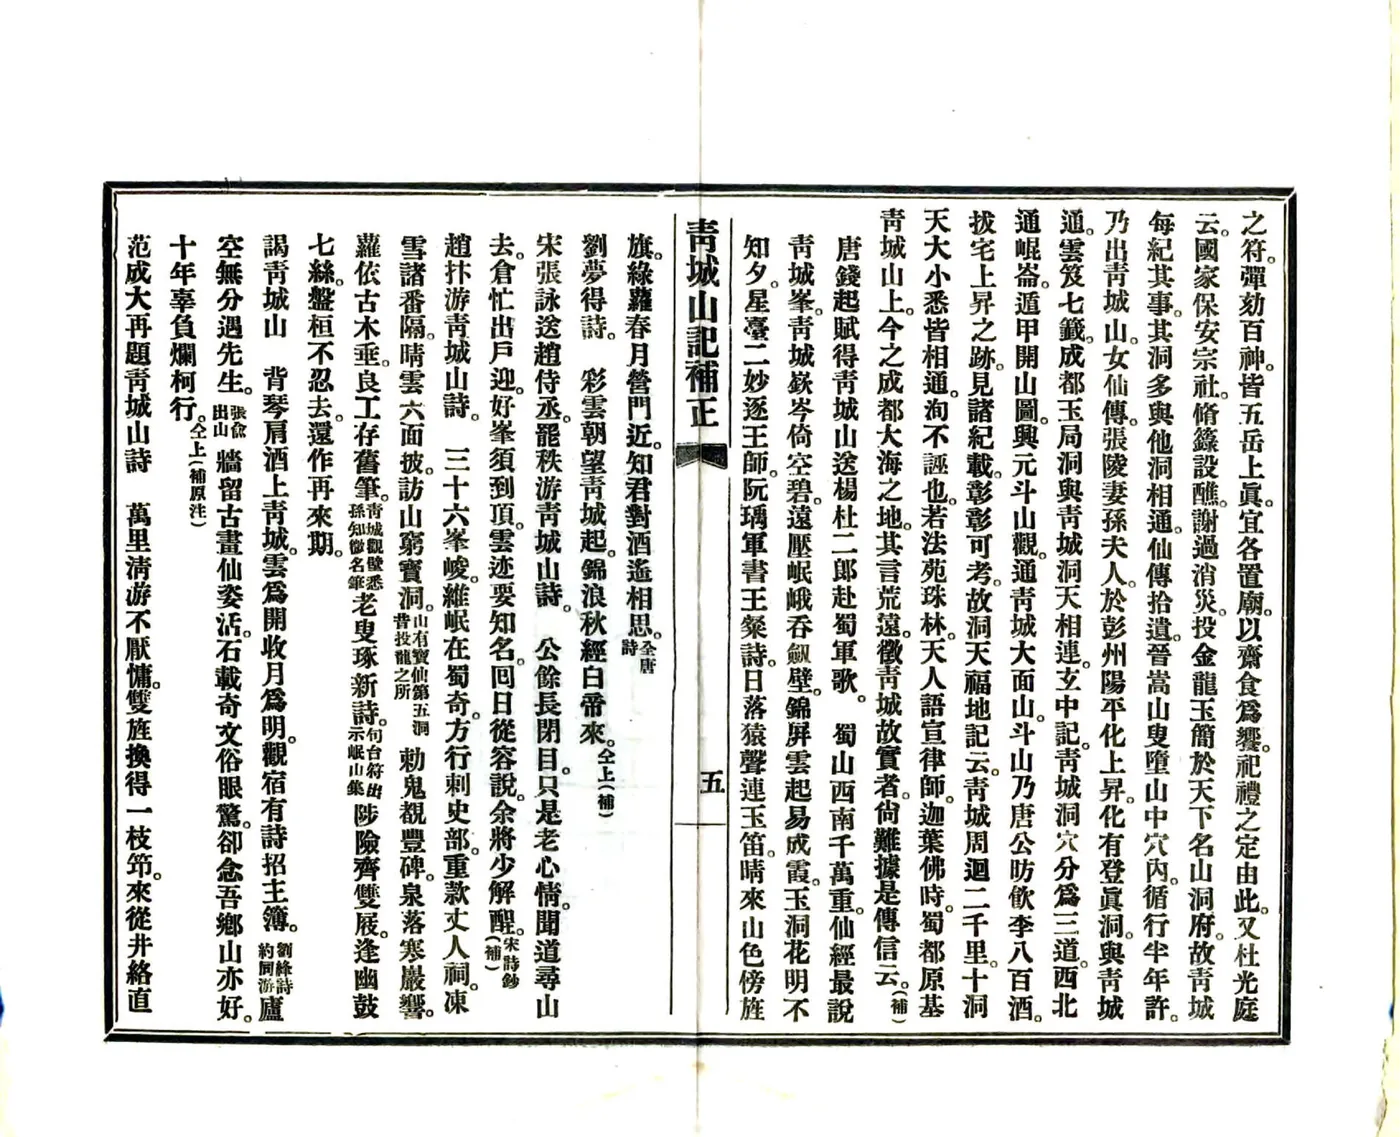 之符。彈劾百神。皆五岳上眞。宜各置廟。以齋食爲饗。祀禮之定由此。又杜光庭
云。國家保安宗社。脩籙設醮。謝過消災。投金龍玉簡於天下名山洞府。故靑城
每紀其事。其洞多與他洞相通。仙傳拾遺。晉嵩山叟墮山中穴內。循行半年許。
乃出靑城山。女仙傳。張陵妻孫夫人。於彭州陽平化上昇。化有登眞洞。與靑城
通。雲笈七籤。成都玉局洞與靑城洞天相連。玄中記。靑城洞穴分爲三道。西北
通崐崙。遁甲開山圖。興元斗山觀。通靑城大面山。斗山乃唐公昉飮李八百酒。
拔宅上昇之跡。見諸紀載。彰彰可考。故洞天福地記云。靑城周迴二千里。十洞
天大小悉皆相通。洵不誣也。若法苑珠林。天人語宣律師。迦葉佛時。蜀都原基
靑城山上。今之成都大海之地。其言荒遠。徵靑城故實者。尙難據是傳信云。(補)
唐錢起賦得靑城山送楊杜二郎赴蜀軍歌。　蜀山西南千萬重。仙經最說
靑城峯。靑城嶔岑倚空碧。遠壓岷峨吞劔壁。錦屛雲起易成霞。玉洞花明不
知夕。星臺二妙逐王師。阮瑀軍書王粲詩。日落猿聲連玉笛。晴來山色傍旌
靑城山記補正
五
旗。綠蘿春月營門近。知君對酒遙相思。全唐詩
劉夢得詩。　彩雲朝望靑城起。錦浪秋經白帝來。仝上(補)
宋張詠送趙侍丞。罷秩游靑城山詩。　公餘長閉目。只是老心情。聞道尋山
去。倉忙出戶迎。好峯須到頂。雲迹要知名。回日從容說。余將少解酲。宋詩鈔(補)
趙抃游靑城山詩。　三十六峯峻。維岷在蜀奇。方行刺史部。重款丈人祠。凍
雪諸番隔。晴雲六面披。訪山窮寶洞。山有寶仙第五洞昔投龍之所　勅鬼覩豐碑。泉落寒巖響。
蘿依古木垂。良工存舊筆。靑城觀壁悉孫知微名筆老叟琢新詩。句台符出示岷山集陟險齊雙屐。逢幽鼓
七絲。盤桓不忍去。還作再來期。
謁靑城山　背琴肩酒上靑城。雲爲開收月爲明。觀宿有詩招主簿。劉緯詩約同游廬
空無分遇先生。張兪出山牆留古畫仙姿活。石載奇文俗眼驚。卻念吾鄉山亦好。
十年辜負爛柯行。仝上(補原注)
范成大再題靑城山詩　萬里淸游不厭慵。雙旌換得一枝笻。來從井絡直